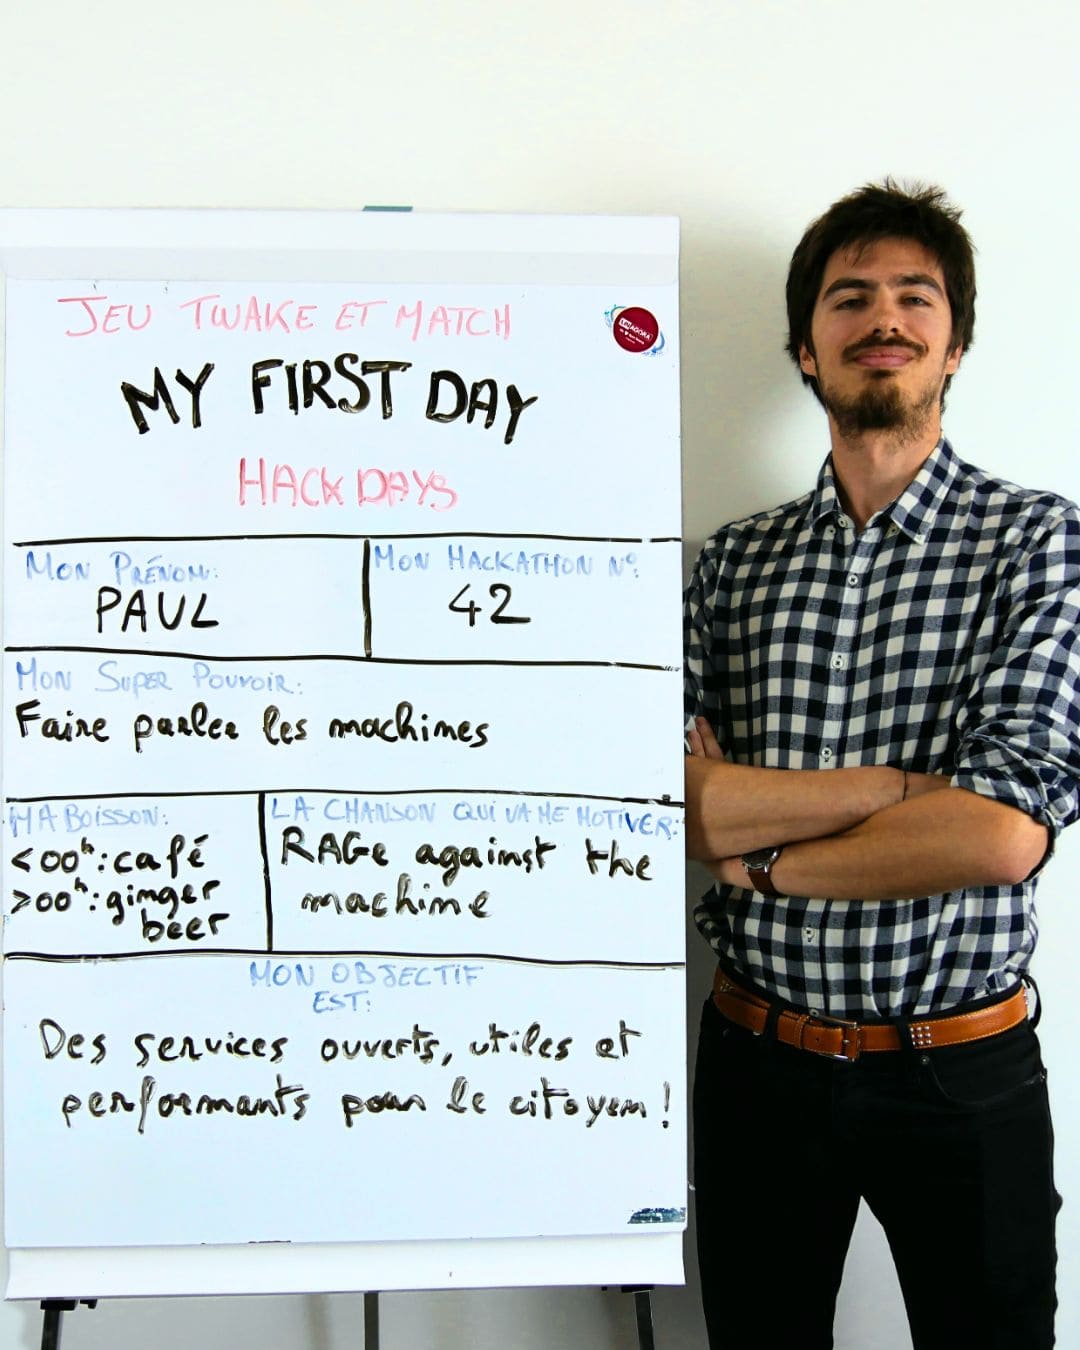 JEU TWAKE ET MATCH
LINAGORA
MY FIRST DAY
HACK DAYS
MON PRÉNOM:
PAUL
MON HACKATHON N°:
42
MON SUPER POUVOIR:
Faire parler les machines
MA BOISSON:
<00h: café
>00h: ginger
beer
LA CHANSON QUI VA ME MOTIVER:
RAGe against the
machine
MON OBJECTIF
EST:
Des services ouverts, utiles et
performants pour le citoyen !